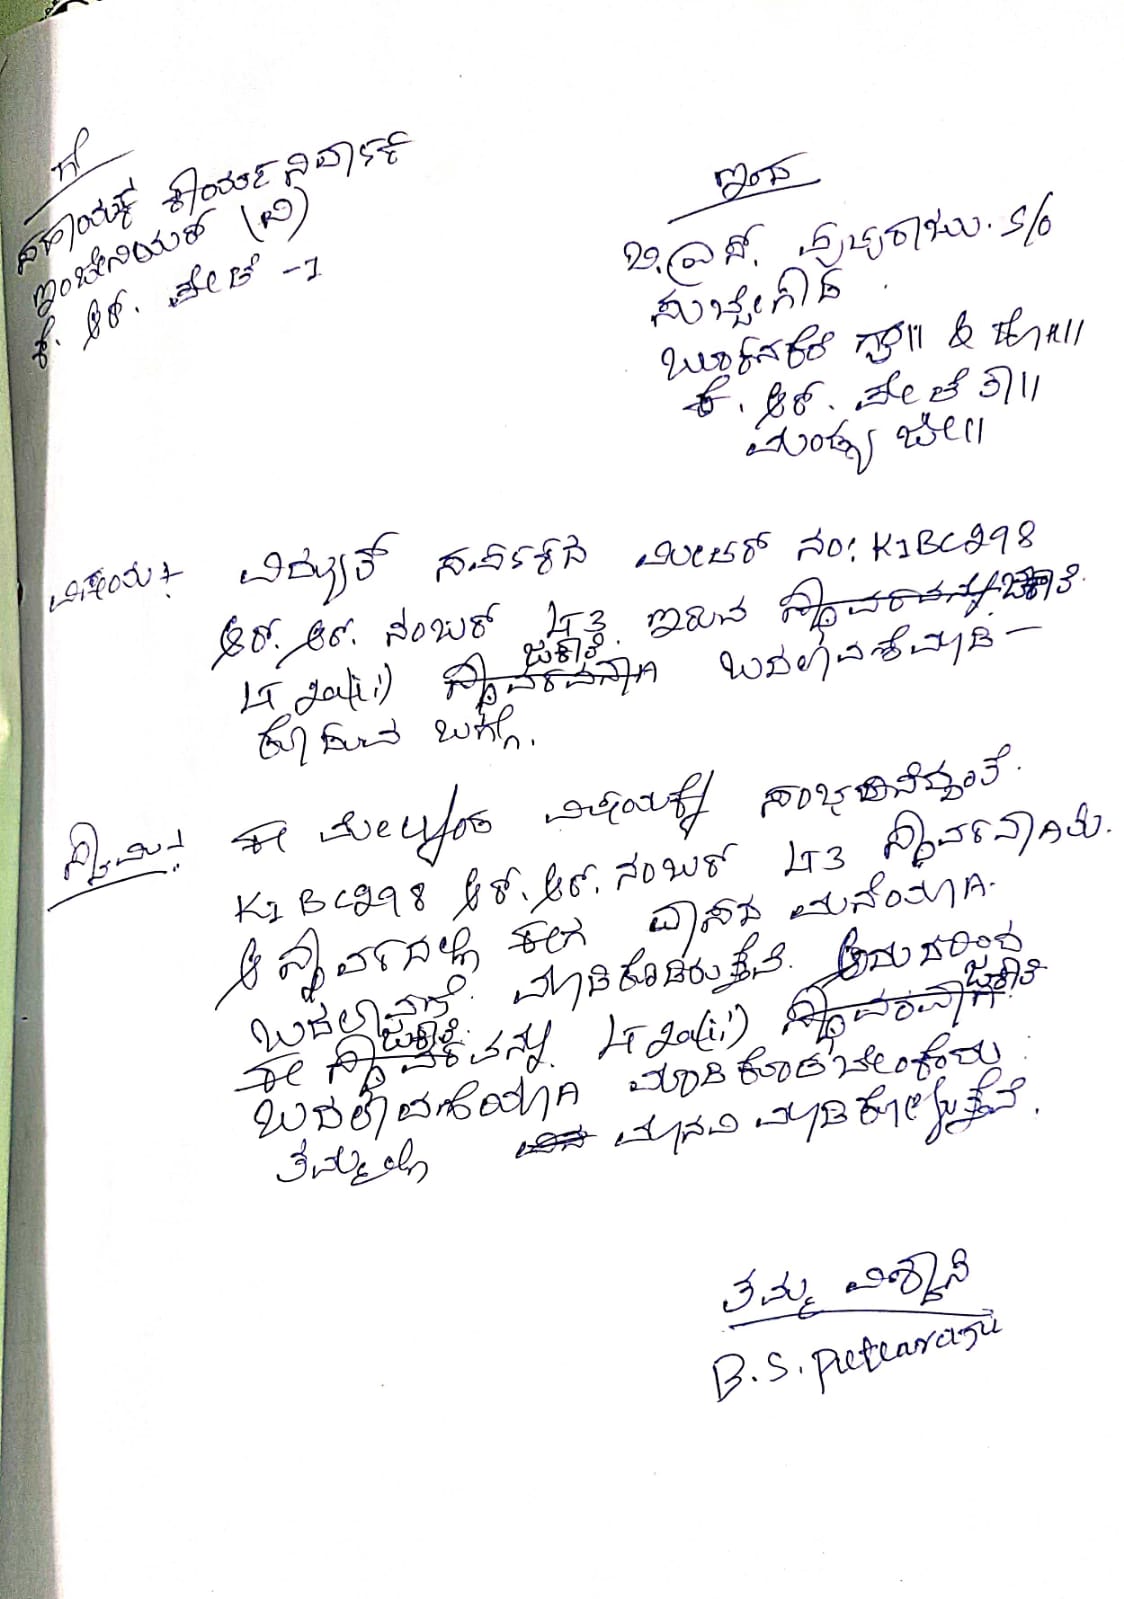 ಗೆ
ಸಹಾಯಕ ಕಾರ್ಯನಿರ್ವಾಹಕ
ಇಂಜಿನಿಯರ್ (ವಿ)
ಕೆ. ಆರ್. ಪೇಟೆ -1
ಇಂದ
ಬಿ.ಎಸ್. ಪುಟ್ಟರಾಜು. S/o
ಸುಬ್ಬೇಗೌಡ
ಬೂಕನಕೆರೆ ಗ್ರಾ|| & ಹೋ||
ಕೆ. ಆರ್. ಪೇಟೆ ತಾ||
ಮಂಡ್ಯ ಜಿಲ್ಲೆ||
ವಿಷಯ:- ವಿದ್ಯುತ್ ಸಂಪರ್ಕದ ಮೀಟರ್ ನಂ: K1BC298
ಆರ್. ಆರ್. ನಂಬರ್ LT3 ಇರುವ ಜಕಾತಿ
LT 2a(ii) ಜಕಾತಿ ಬದಲಾವಣೆ ಮಾಡಿ-
ಕೊಡುವ ಬಗ್ಗೆ.
ಸ್ವಾಮಿ, ಈ ಮೇಲ್ಕಂಡ ವಿಷಯಕ್ಕೆ ಸಂಬಂಧಿಸಿದಂತೆ
K1BC298 ಆರ್. ಆರ್. ನಂಬರ್ LT3 ಸ್ಥಾವರವಾಗಿದೆ.
ಆ ಸ್ಥಾವರದಲ್ಲಿ ಈಗ ವಾಸದ ಮನೆಯಾಗಿ
ಬದಲಾವಣೆ ಮಾಡಿಕೊಂಡಿರುತ್ತೇವೆ. ಆದುದರಿಂದ
ಈ ಜಕಾತಿಯನ್ನು LT 2a(ii) ಜಕಾತಿ
ಬದಲಾವಣೆಯಾಗಿ ಮಾಡಿಕೊಡಬೇಕೆಂದು
ತಮ್ಮಲ್ಲಿ ಮನವಿ ಮಾಡಿಕೊಳ್ಳುತ್ತೇವೆ.
ತಮ್ಮ ವಿಶ್ವಾಸಿ
B.S. Puttaraju